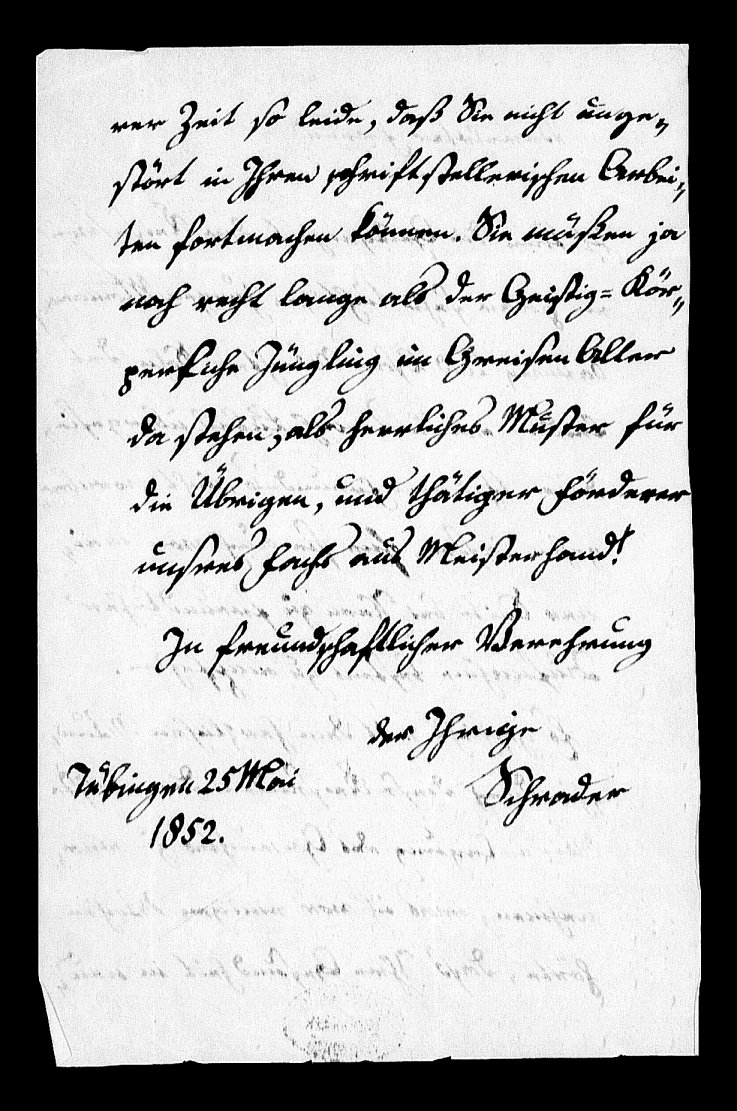 rer Zeit so leide, daß Sie nicht unge-
stört in Ihren schriftstellerischen Arbei-
ten fortmachen können. Sie müßen ja
noch recht lange als der Geistig= Kör-
perliche Jüngling im Greisen Alter
da stehen, als herrliches Muster für
die Übrigen, und thätiger Förderer
unsres Fachs aus Meisterhand!
In freundschaftlicher Verehrung
der Ihrige
Schrader
Tübingen 25 Mai
1852.